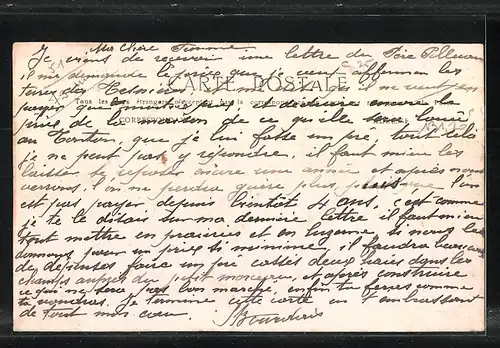 Ma Chère Femme
Je viens de recevoir une lettre du Père
il me demande le prix que je veux affermer les
terres des il ne veut
CARTE POSTALE
Tous les étrangers n'acceptent pas la correspondance
payer que déduire encore le
CORRESPONDANCE
prix de la maison de ce qu'elle loué
au que je lui fasse un pré, tout cela
je ne peut pas y répondre, il faut mieux les
laisser se reposer encore une année et après nous
verrons, l'on ne perdra guère plus, l'on
est pas payer depuis bientôt 4 ans, c'est comme
je te le disais sur ma dernière lettre il faut mieux
tout mettre en prairies et en luzerne, si nous les
donnons pour un prix si minime, il faudra beaucoup
de dépenses faire un pré cassés deux haies dans les
champs du petit morceau, et après construire
ce qui ne sera pas bon marché, enfin tu feras comme
tu voudras. Je termine cette carte en t'embrassant
de tout mon cœur.